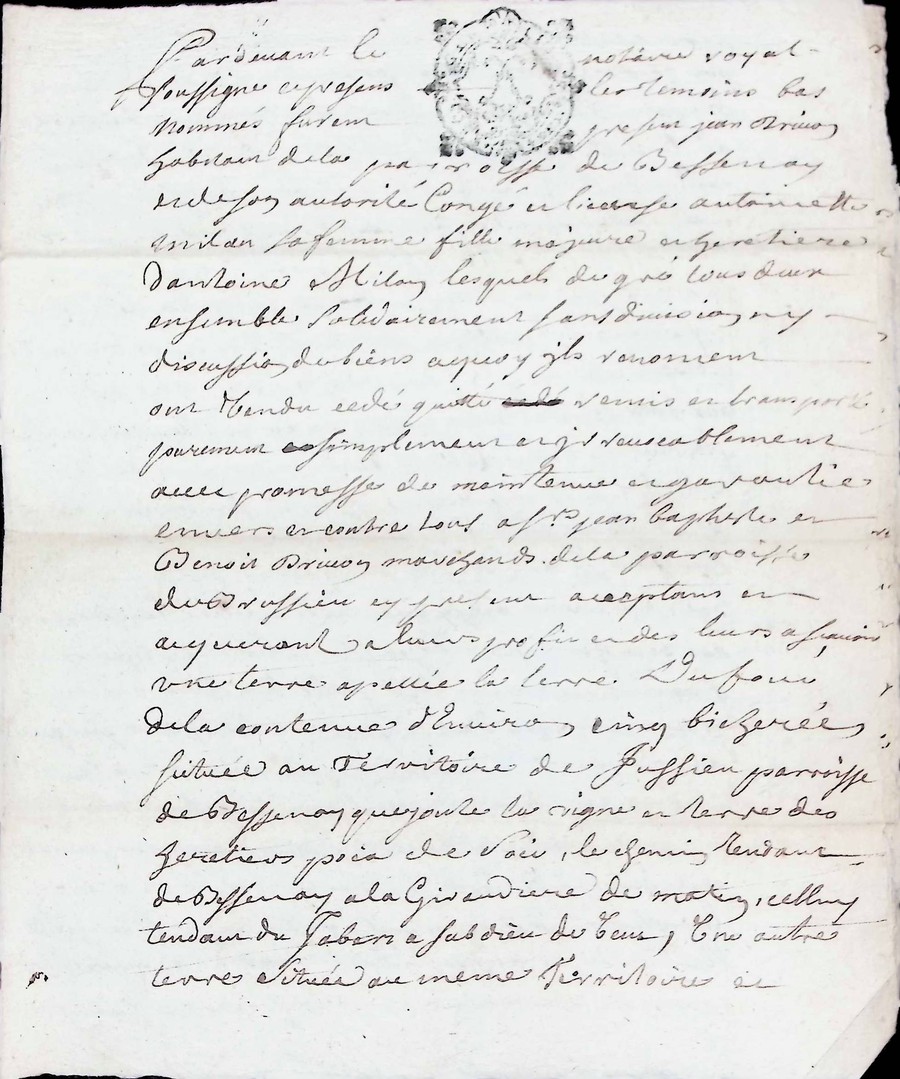 Pardevant le notaire royal
soussigné et presens les temoins bas
nommés furent present jean Bricon
habitant de la parroisse de Bessenay
et de son autorité Congé et license antoinette
milan sa femme fille majeure et heretiere
d'antoine Milan lesquels de gré tous deux
ensemble solidairement sans division ny
discussion de biens aquoy jls renoncent
ont Vendu cedé quitté cedé remis et transporté
purement et simplement et jrrevocablement
avec promesse de maintenue et garantie
envers et contre tous a srs jean baptiste et
Benoit Bricon marchands de la parroisse
de Brussieu cy present acceptans et
acquerant a leurs profit et des leurs a sçavoir
vne terre apellée la terre Du four
de la contenue d'Environ cinq bicherées
située au Territoire de Jussieu parroisse
de Bessenay que joute la vigne et terre des
heretiers de soir, le chemin tendant
de Bessenay a la Giraudiere de matin, celluy
tendant du a de vent, Une autre
terre située au meme Territoire et